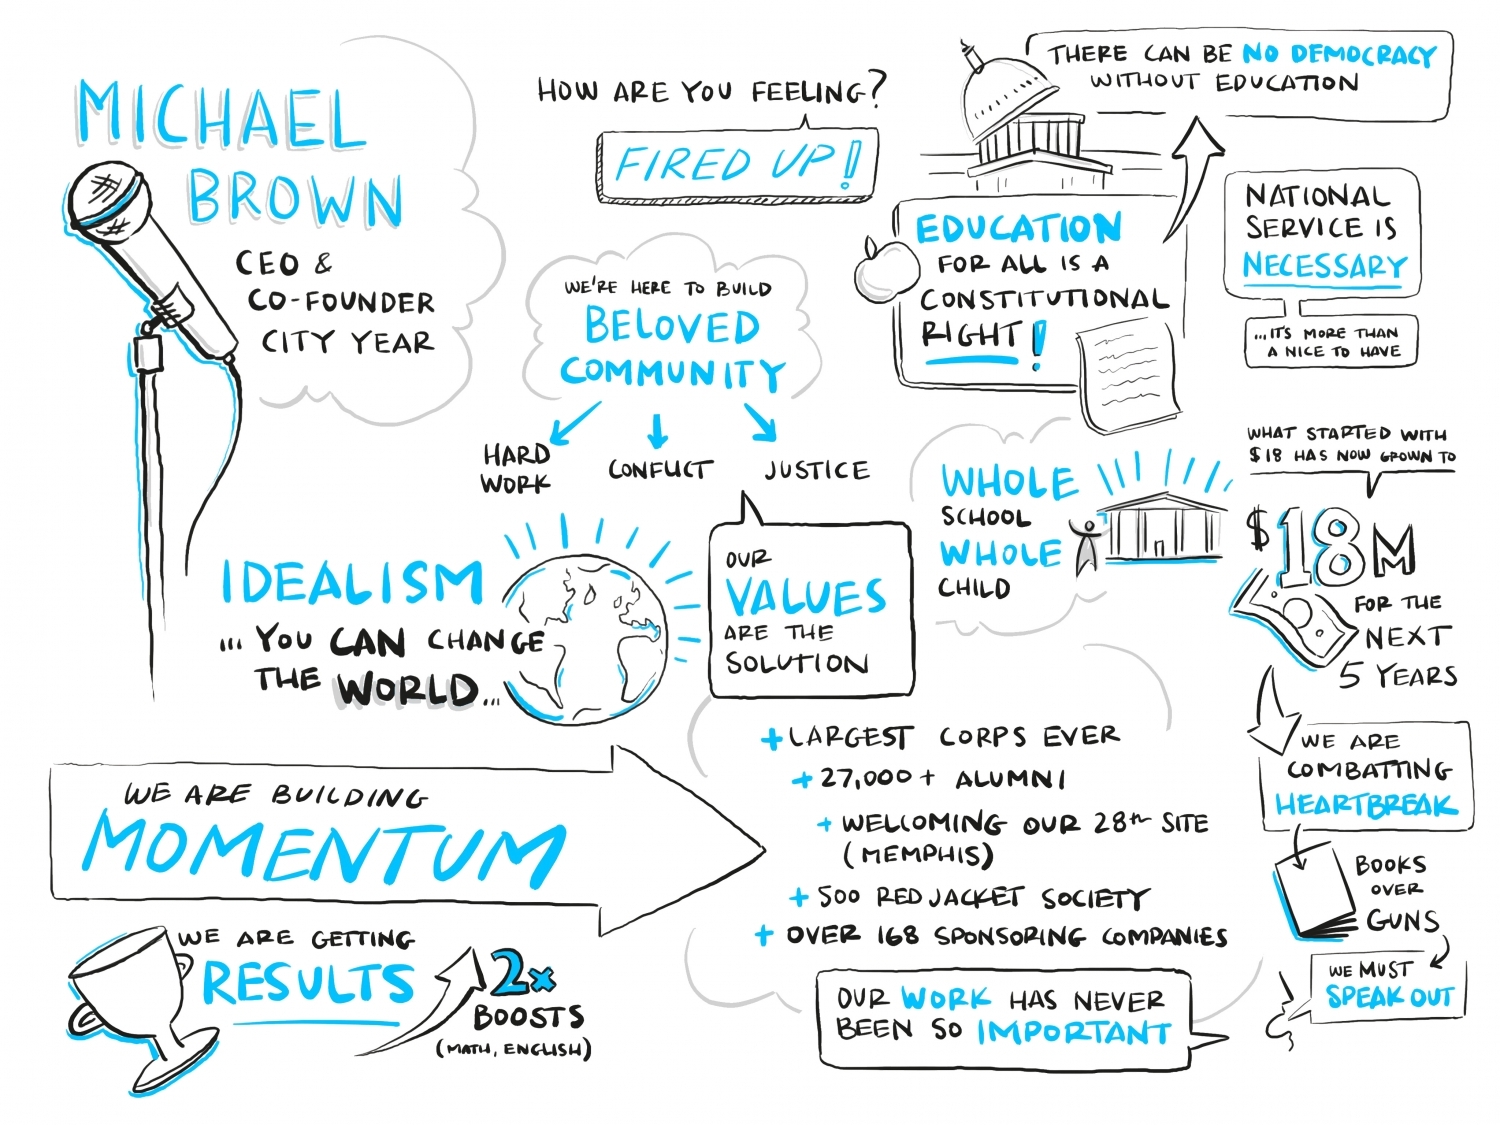 MICHAEL
BROWN
CEO &
CO-FOUNDER
CITY YEAR
HOW ARE YOU FEELING?
FIRED UP!
WE'RE HERE TO BUILD
BELOVED
COMMUNITY
HARD
WORK
CONFLICT
JUSTICE
THERE CAN BE NO DEMOCRACY
WITHOUT EDUCATION
EDUCATION
FOR ALL IS A
CONSTITUTIONAL
RIGHT!
NATIONAL
SERVICE IS
NECESSARY
...IT'S MORE THAN
A NICE TO HAVE
IDEALISM
... YOU CAN CHANGE
THE WORLD...
OUR
VALUES
ARE THE
SOLUTION
WHOLE
SCHOOL
WHOLE
CHILD
WHAT STARTED WITH
$18 HAS NOW GROWN TO
$18M
FOR THE
NEXT
5 YEARS
WE ARE
COMBATTING
HEARTBREAK
BOOKS
OVER
GUNS
WE MUST
SPEAK OUT
WE ARE BUILDING
MOMENTUM
+ LARGEST CORPS EVER
+ 27,000+ ALUMNI
+ WELCOMING OUR 28th SITE
(MEMPHIS)
+ 500 RED JACKET SOCIETY
+ OVER 168 SPONSORING COMPANIES
WE ARE GETTING
RESULTS
2x
BOOSTS
(MATH, ENGLISH)
OUR WORK HAS NEVER
BEEN SO IMPORTANT